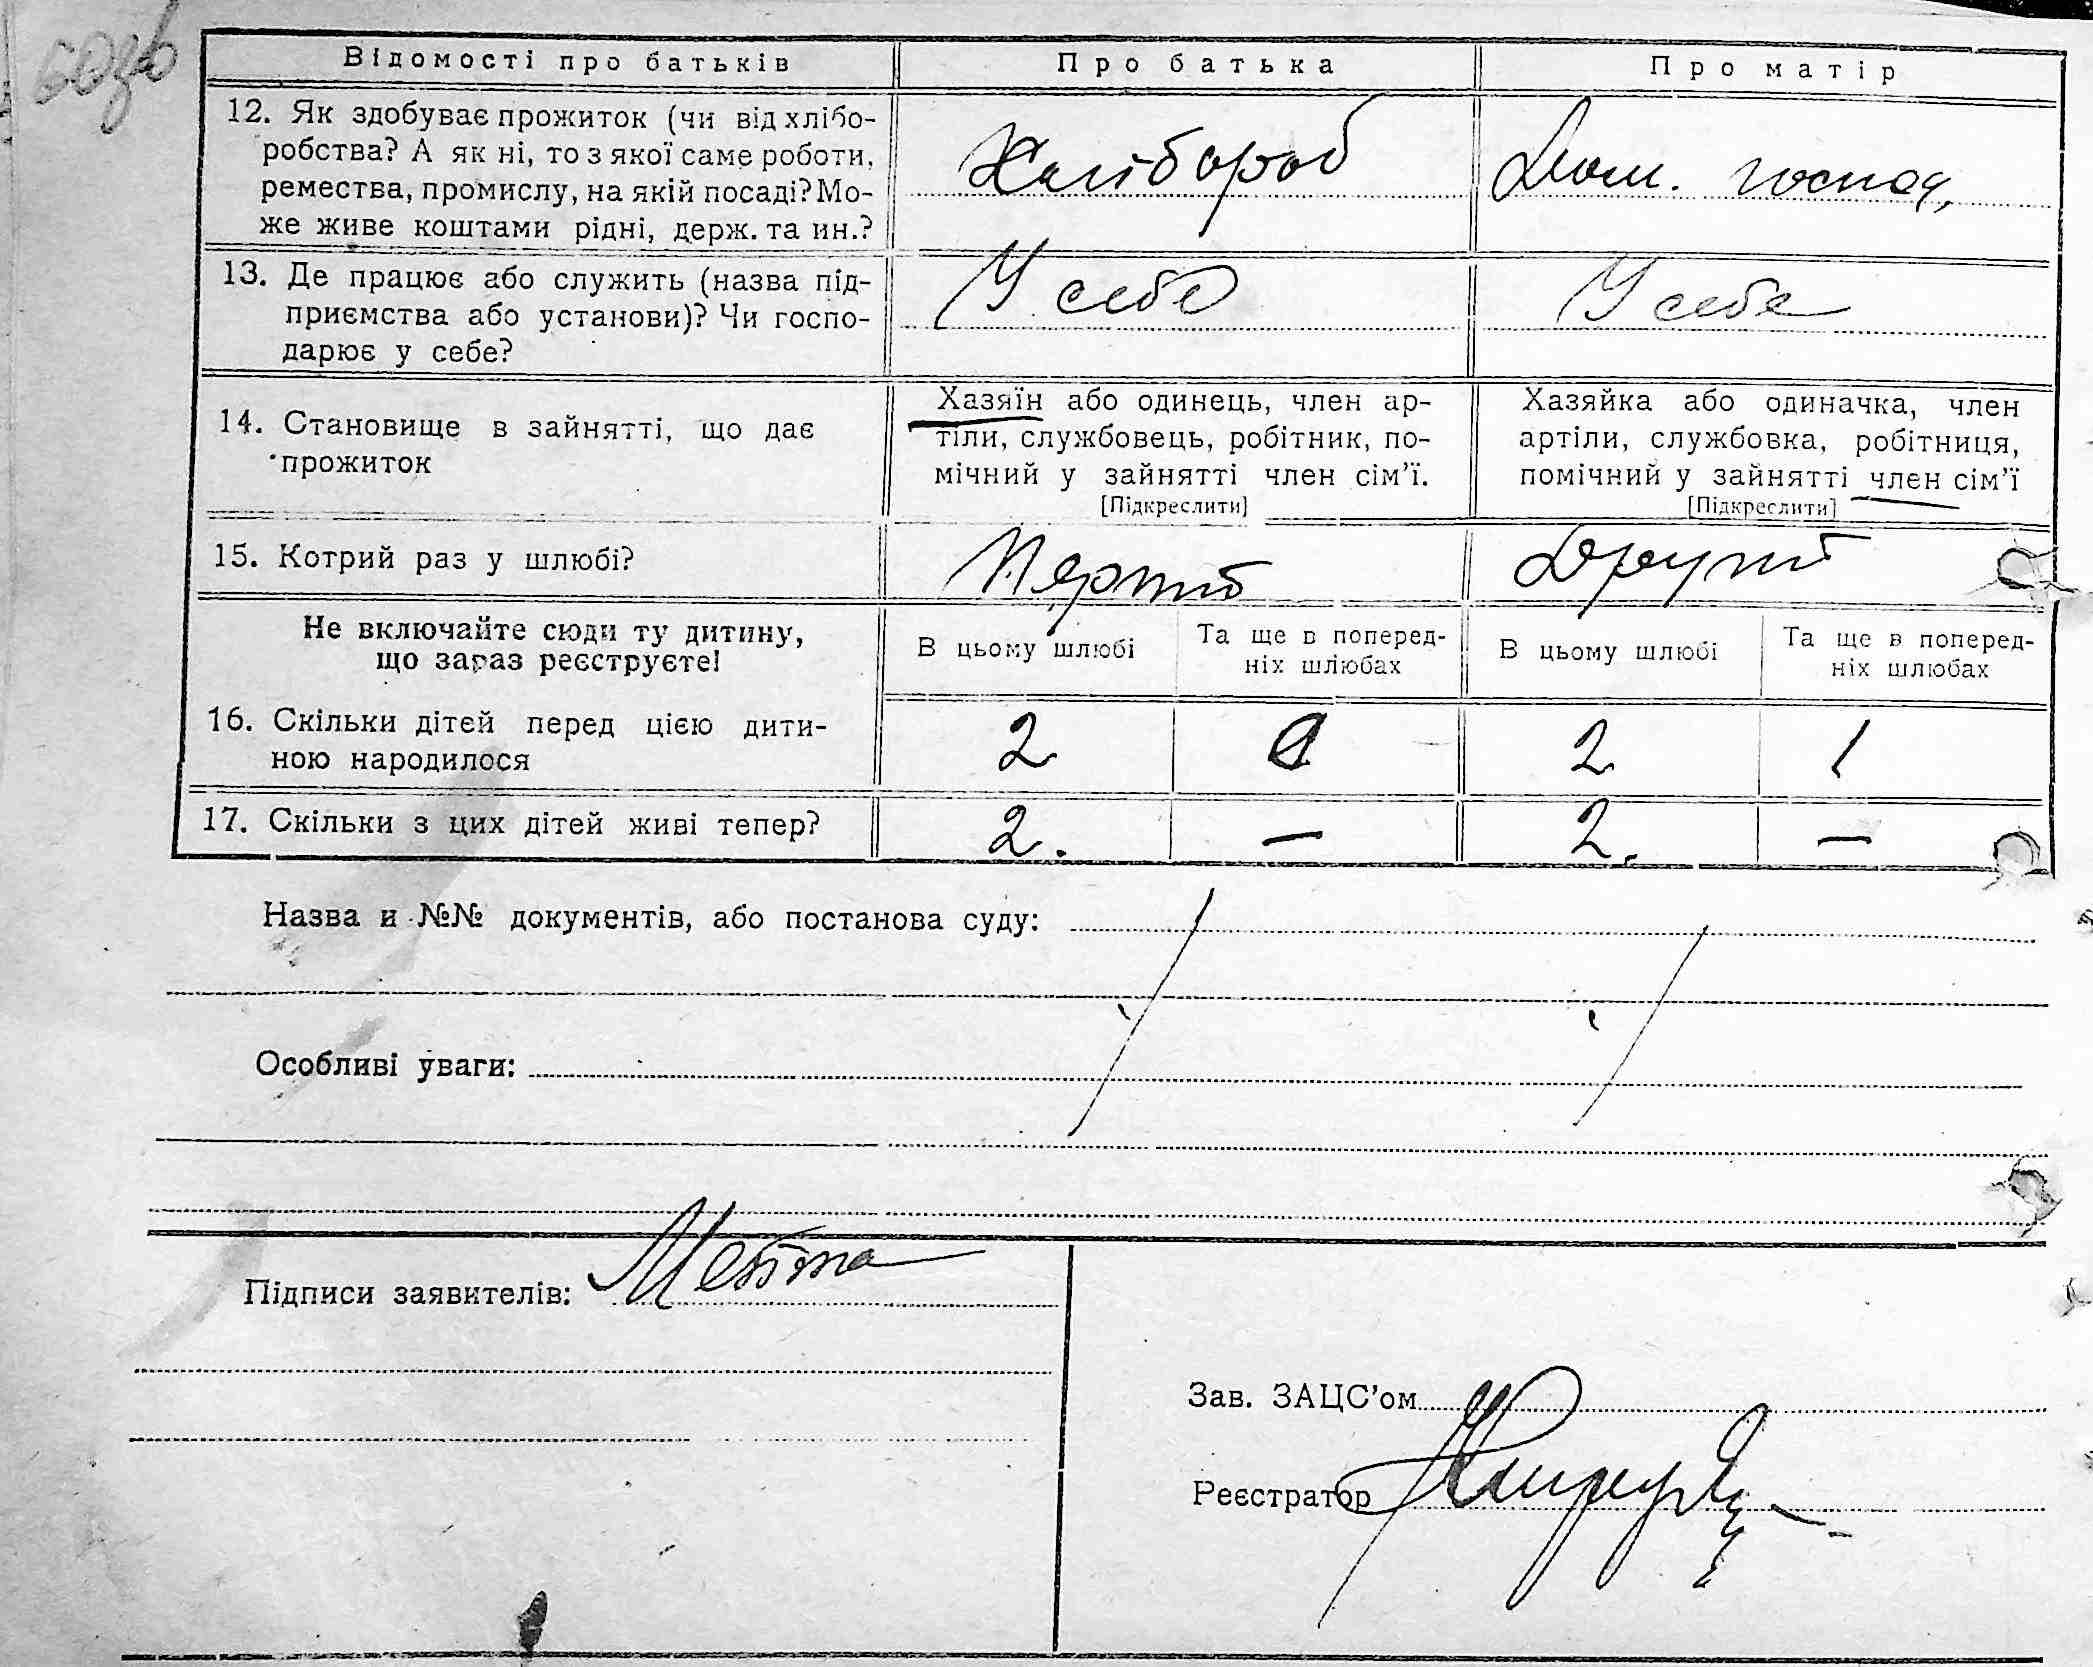 Відомості про батьків Про батька Про матір
12. Як здобуває прожиток (чи від хлібо-
робства? А як ні, то з якої саме роботи,
ремества, промислу, на якій посаді? Мо-
же живе коштами рідні, держ. та ин.?
Хлібороб
Дом. господ,
13. Де працює або служить (назва під-
приємства або установи)? Чи госпо-
дарює у себе?
У себе
У себе
14. Становище в зайнятті, що дає
прожиток
Хазяїн або одинець, член ар-
тіли, службовець, робітник, по-
мічний у зайнятті член сім'ї.
[Підкреслити]
Хазяйка або одиначка, член
артіли, службовка, робітниця,
помічний у зайнятті член сім'ї
[Підкреслити]
15. Котрий раз у шлюбі?
Перший
Другий
Не включайте сюди ту дитину,
що зараз реєструєте!
В цьому шлюбі
Та ще в поперед-
ніх шлюбах
В цьому шлюбі
Та ще в поперед-
ніх шлюбах
16. Скільки дітей перед цією дити-
ною народилося
2 2 1
17. Скільки з цих дітей живі тепер?
2. — 2. —
Назва и №№ документів, або постанова суду:
Особливі уваги:
Підписи заявителів:
Зав. ЗАЦС'ом
Реєстратор